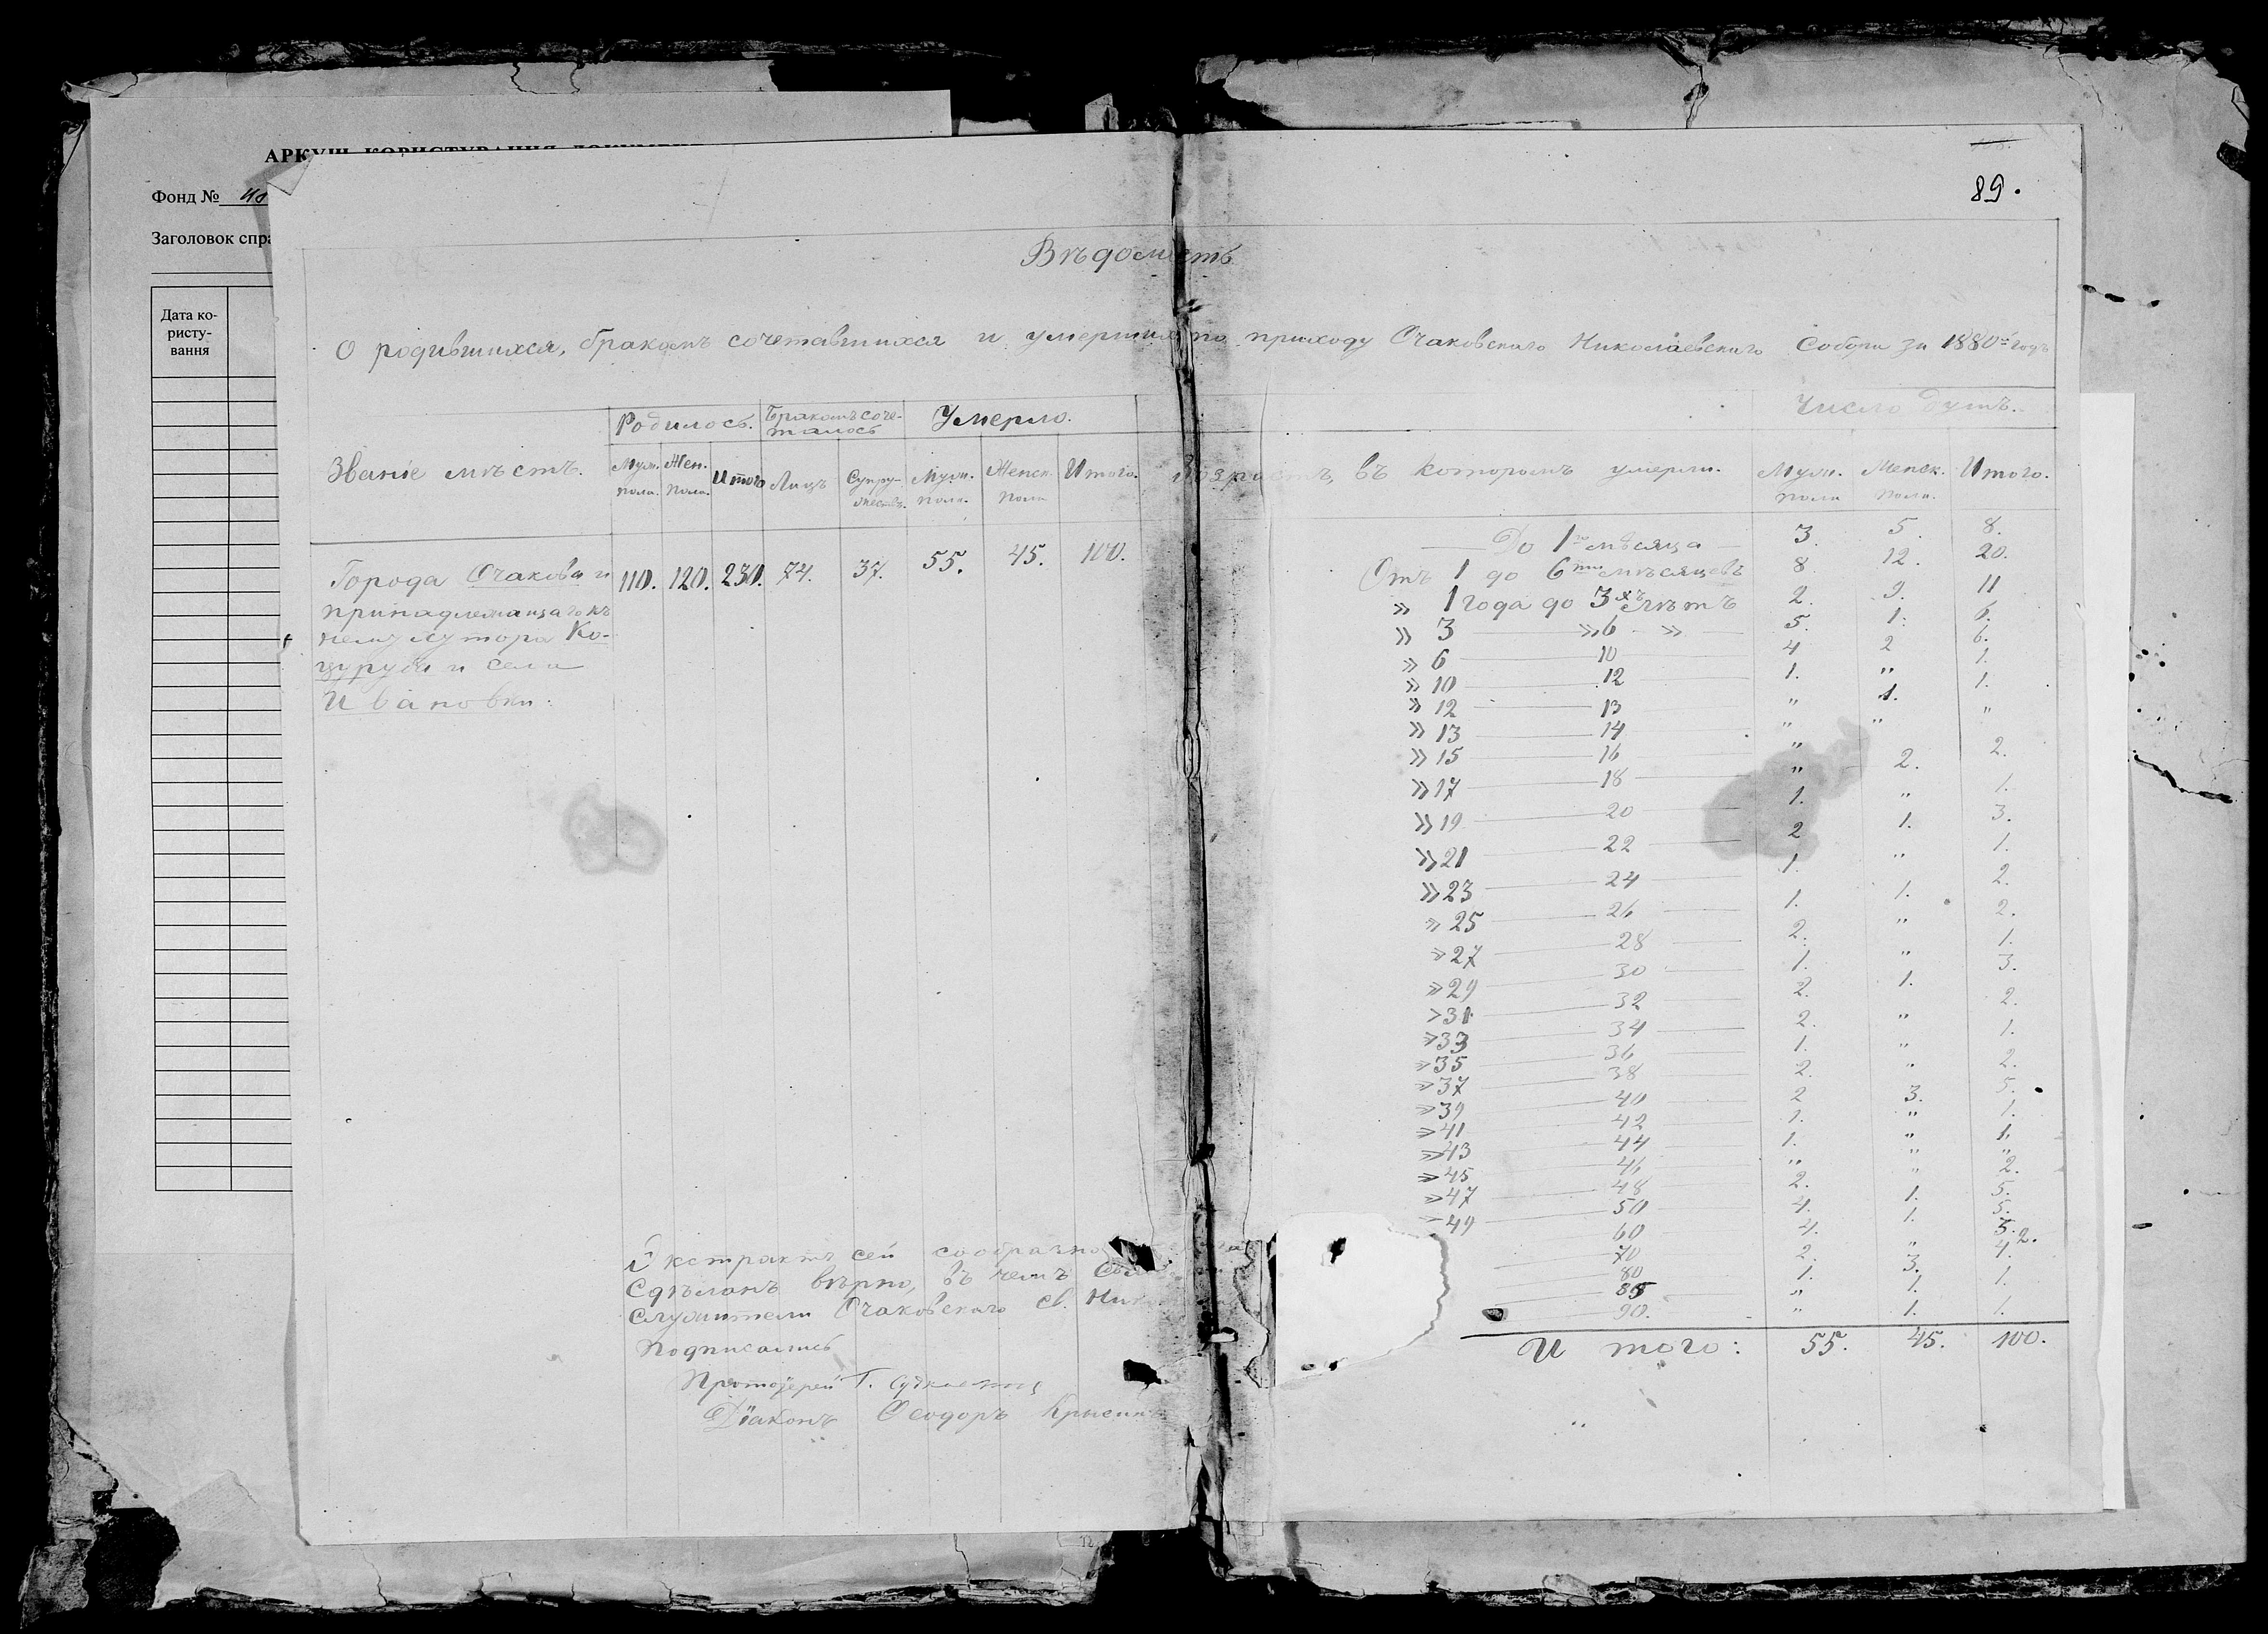 АРКУШ КОРИСТУВАННЯ
Фонд №
Заголовок спра
Дата ко-
ристу-
вання
89.
Вѣдомость
О родившихся, бракомъ сочетавшихся и умершихъ по приходу Очаковскаго Николаевскаго Собора за 1880й годъ
Званіе мѣстъ.
Родилось.
Бракомъ соче-
талось
Умерло.
Муж. пола.
Жен. пола.
Итого
Лицъ
Супру-
жествъ.
Мужс. пола.
Женск. пола
Итого.
Возрастъ, въ которомъ умерли.
Число душъ.
Мужс. пола
Женск. пола.
Итого.
Города Очакова и
принадлежащаго къ
нему хутора Ко-
цуруба и села
Ивановки:
110. 120. 230. 74. 37. 55. 45. 100.
До 1го мѣсяца 3. 5. 8.
Отъ 1 до 6ти мѣсяцевъ 8 12. 20.
» 1 года до 3хъ лѣтъ 2. 9. 11
» 3 » 6 » 5. 1. 6.
» 6 10 4 2 6.
» 10 12 1. " 1.
» 12 13 " 1. 1.
» 13 14 " " "
» 15 16 "
» 17 18 " 2. 2.
» 19 20 1. " 1.
» 21 22 2 1. 3.
» 23 24 1. " 1.
» 25 26 1. 1. 2.
» 27 28 2. " 2.
» 29 30 1. " 1.
» 31 32 2. 1. 3.
» 33 34 2. " 2.
» 35 36 1. " 1.
» 37 38 2. " 2.
» 39 40 2 3. 5.
» 41 42 1. " 1.
» 43 44 1. " 1.
» 45 46 " " "
» 47 48 2. " 2.
49 50 4. 1. 5.
60 4. 1. 5.
70 2. " 2.
80 1. 3. 4.
85 " 1. 1.
90. " 1. 1.
Итого: 55. 45. 100.
Экстрактъ сей сообразно
сдѣланъ вѣрно, въ чемъ
служители Очаковскаго св.
подписались
Протоіерей Г.
Діаконъ Ѳеодоръ